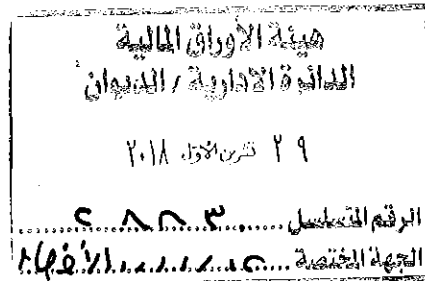 هيئة الأوراق المالية
الدائرة الادارية / الديوان
٢٩ تشرين الاول ٢٠١٨
الرقم المتسلسل ٢٨٨٣
الجهة المختصة